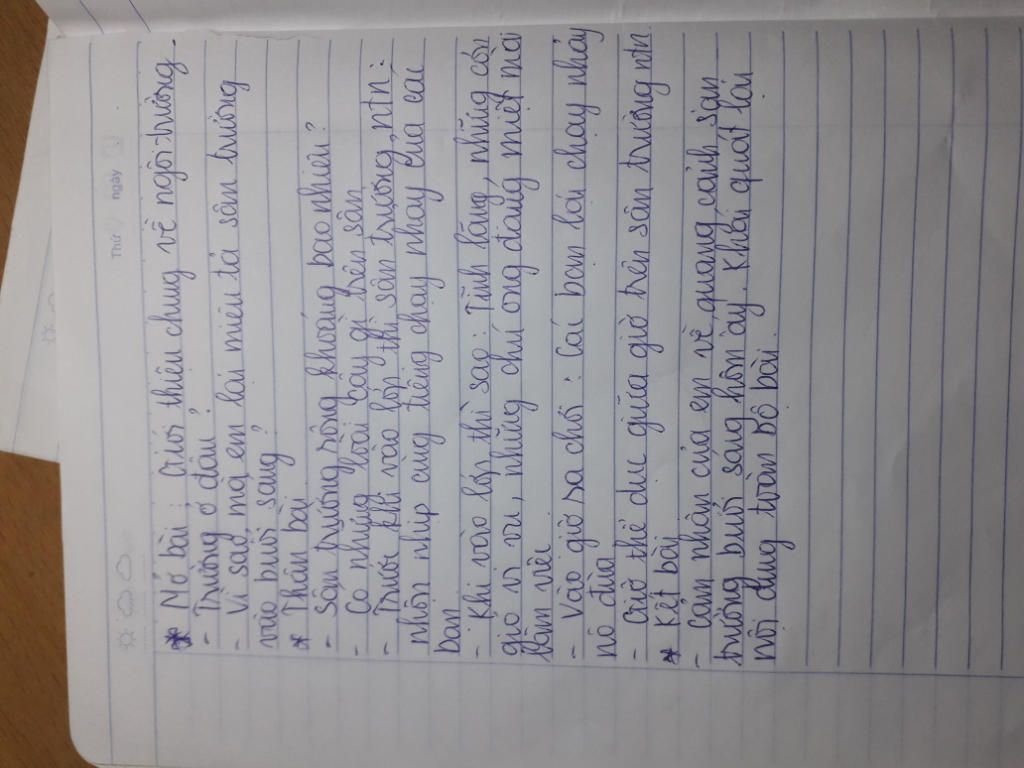 Thứ ngày
* Mở bài : Giới thiệu chung về ngôi trường.
- Trường ở đâu ?
- Vì sao mà em lại miêu tả sân trường
vào buổi sáng ?
* Thân bài
- Sân trường rộng khoảng bao nhiêu ?
- Có những loài cây gì trên sân
- Trước khi vào lớp thì sân trường ntn :
nhộn nhịp cùng tiếng chạy nhảy của các
bạn
- Khi vào lớp thì sao : Tĩnh lặng, những cơn
gió vi vu, những chú ong đang miệt mài
làm việc
- Vào giờ ra chơi : Các bạn lại chạy nhảy
nô đùa
- Giờ thể dục giữa giờ trên sân trường ntn
* Kết bài
- Cảm nhận của em về quang cảnh sân
trường buổi sáng hôm ấy. Khái quát lại
nội dung toàn bộ bài.